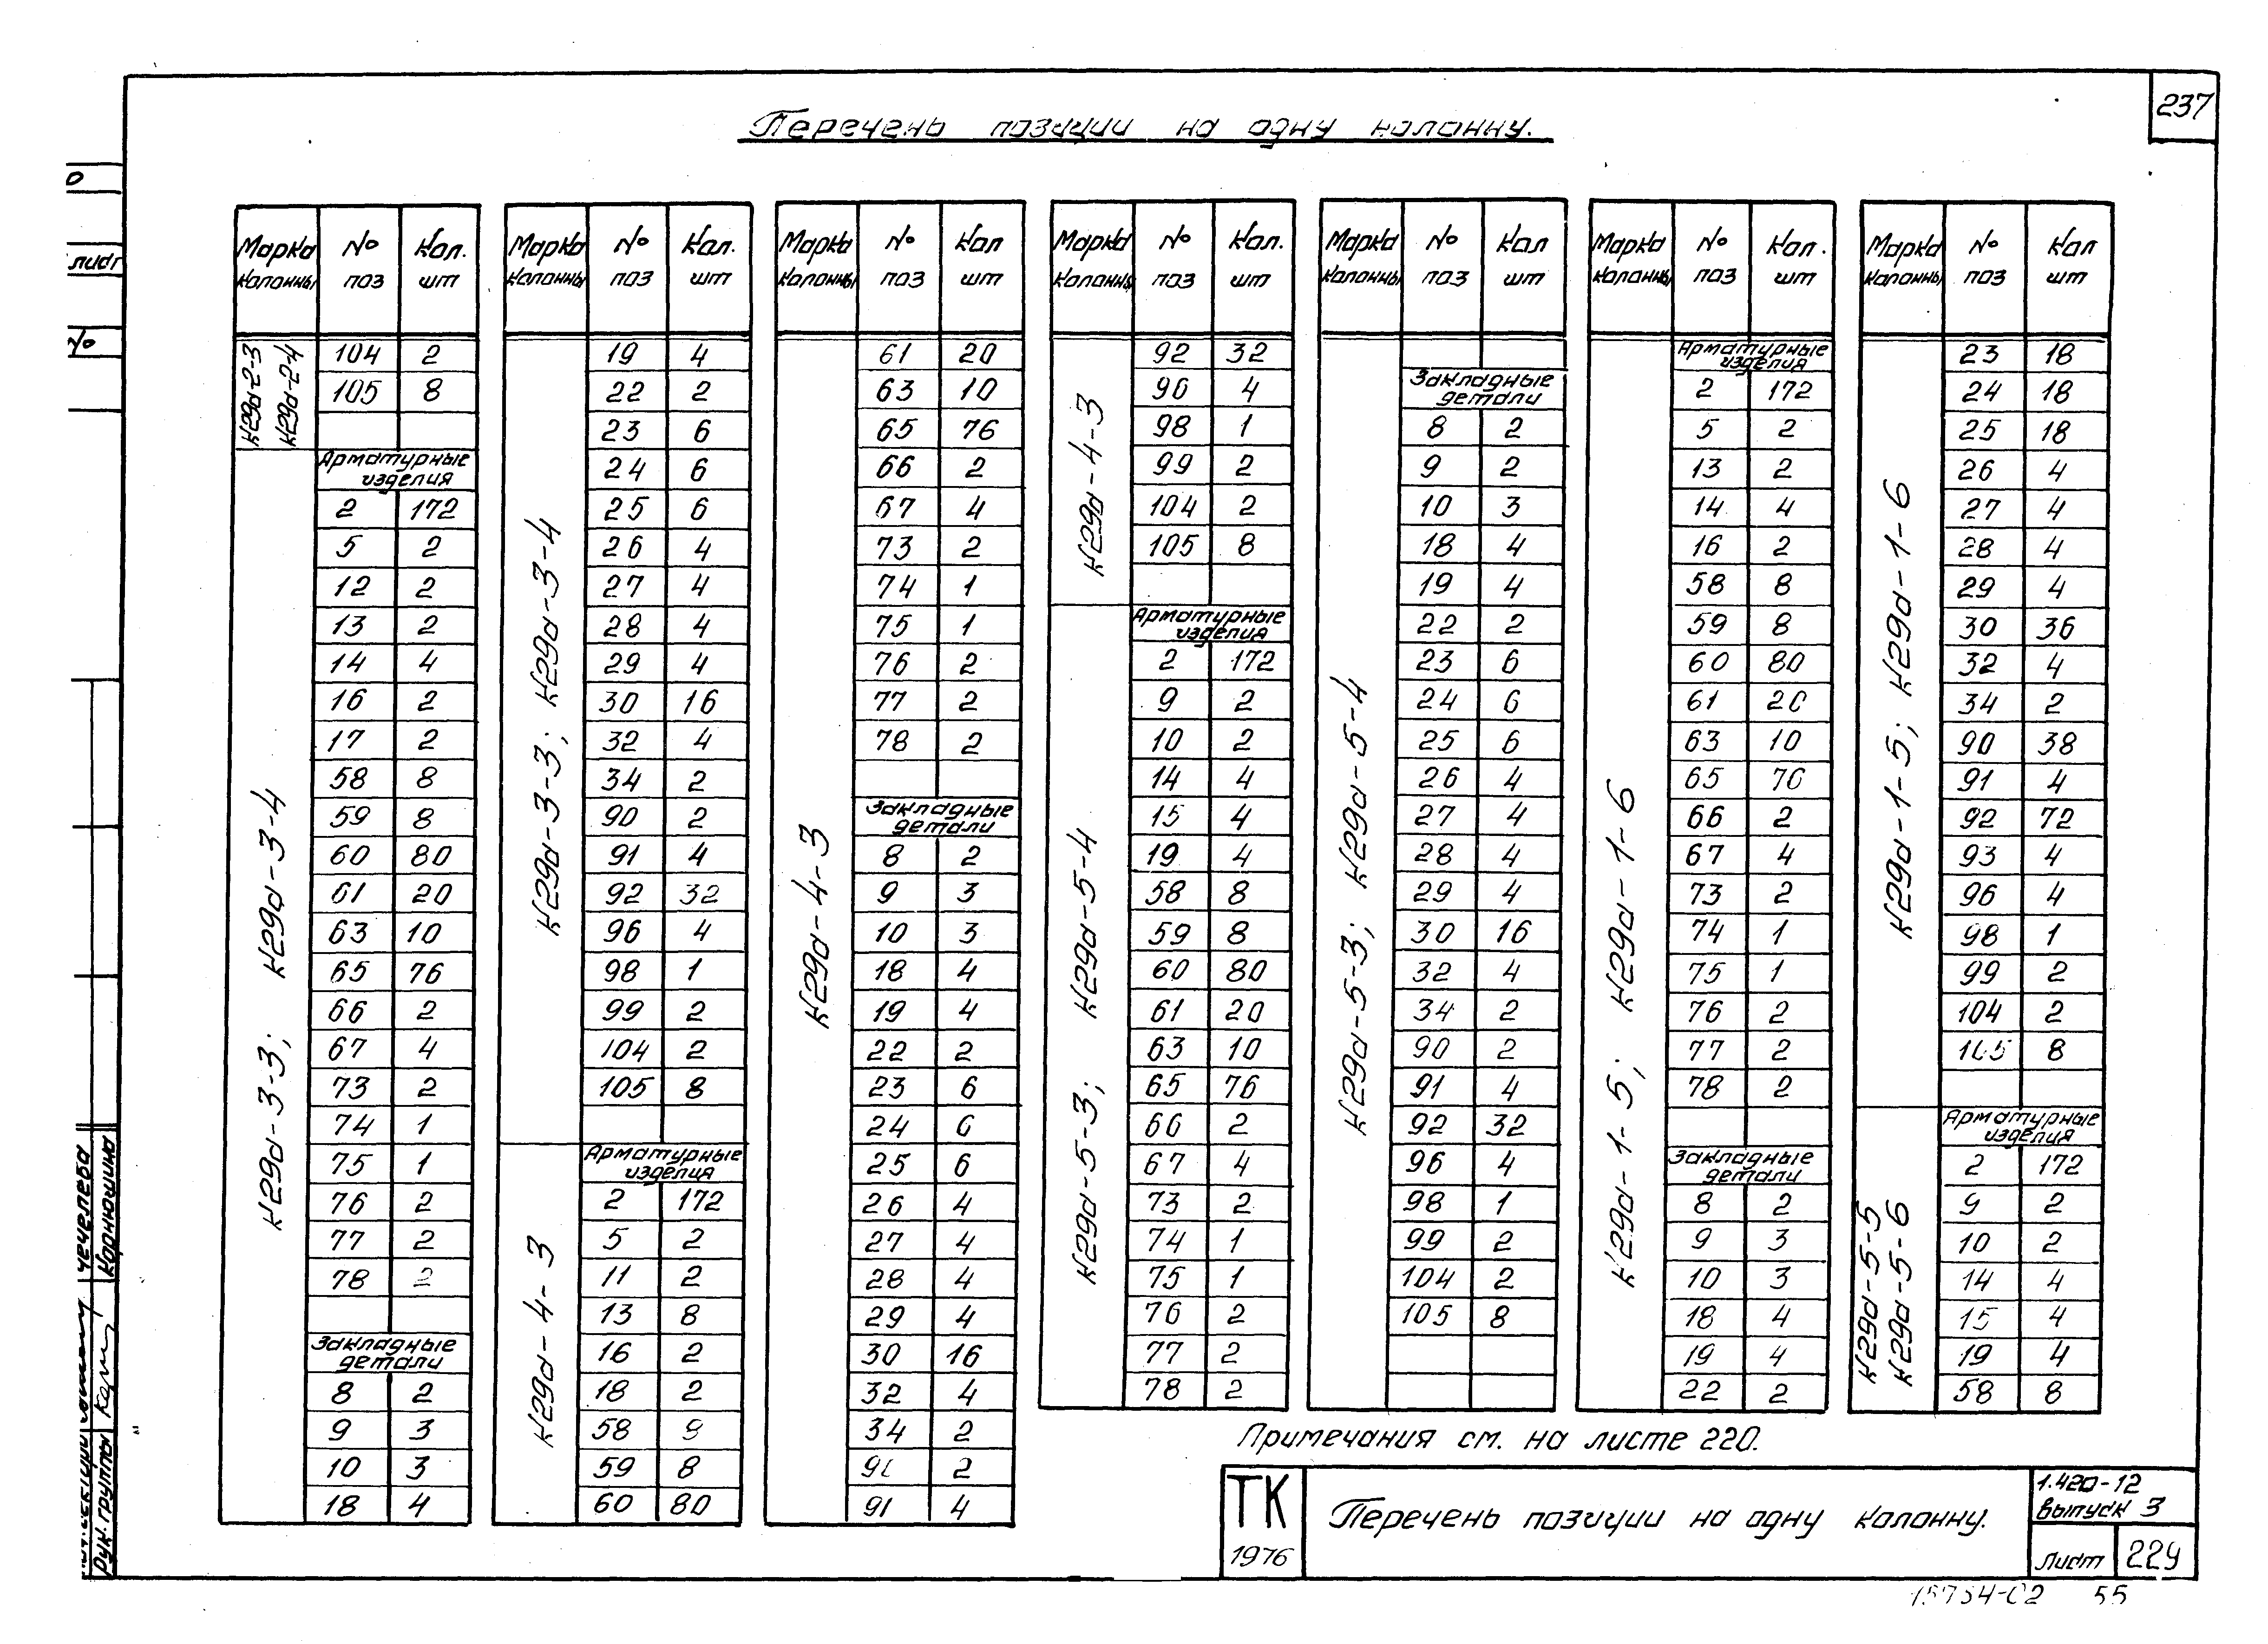 237
Перечень позиции на одну колонну.
Марка колонны | № поз | Кол. шт
К29а-2-3 К29а-2-4
104 2
105 8
К29а-3-3; К29а-3-4
Арматурные изделия
2 172
5 2
12 2
13 2
14 4
16 2
17 2
58 8
59 8
60 80
61 20
63 10
65 76
66 2
67 4
73 2
74 1
75 1
76 2
77 2
78 2
Закладные детали
8 2
9 3
10 3
18 4
Марка колонны | № поз | Кол. шт
К29а-3-3; К29а-3-4
19 4
22 2
23 6
24 6
25 6
26 4
27 4
28 4
29 4
30 16
32 4
34 2
90 2
91 4
92 32
96 4
98 1
99 2
104 2
105 8
К29а-4-3
Арматурные изделия
2 172
5 2
11 2
13 8
16 2
18 2
58 8
59 8
60 80
Марка колонны | № поз | Кол шт
К29а-4-3
61 20
63 10
65 76
66 2
67 4
73 2
74 1
75 1
76 2
77 2
78 2
Закладные детали
8 2
9 3
10 3
18 4
19 4
22 2
23 6
24 6
25 6
26 4
27 4
28 4
29 4
30 16
32 4
34 2
90 2
91 4
Марка колонны | № поз | Кол. шт
К29а-4-3
92 32
96 4
98 1
99 2
104 2
105 8
К29а-5-3; К29а-5-4
Арматурные изделия
2 172
9 2
10 2
14 4
15 4
19 4
58 8
59 8
60 80
61 20
63 10
65 76
66 2
67 4
73 2
74 1
75 1
76 2
77 2
78 2
Марка колонны | № поз | Кол шт
К29а-5-3; К29а-5-4
Закладные детали
8 2
9 2
10 3
18 4
19 4
22 2
23 6
24 6
25 6
26 4
27 4
28 4
29 4
30 16
32 4
34 2
90 2
91 4
92 32
96 4
98 1
99 2
104 2
105 8
Марка колонны | № поз | Кол. шт
К29а-1-5; К29а-1-6
Арматурные изделия
2 172
5 2
13 2
14 4
16 2
58 8
59 8
60 80
61 20
63 10
65 76
66 2
67 4
73 2
74 1
75 1
76 2
77 2
78 2
Закладные детали
8 2
9 3
10 3
18 4
19 4
22 2
Марка колонны | № поз | Кол шт
К29а-1-5; К29а-1-6
23 18
24 18
25 18
26 4
27 4
28 4
29 4
30 36
32 4
34 2
90 38
91 4
92 72
93 4
96 4
98 1
99 2
104 2
105 8
К29а-5-5
К29а-5-6
Арматурные изделия
2 172
9 2
10 2
14 4
15 4
19 4
58 8
Примечания см. на листе 220.
ТК
1976
Перечень позиции на одну колонну.
1.420-12
выпуск 3
Лист 229
15754-02 55
лист
Чечелева
Рук. группы Корнюшина